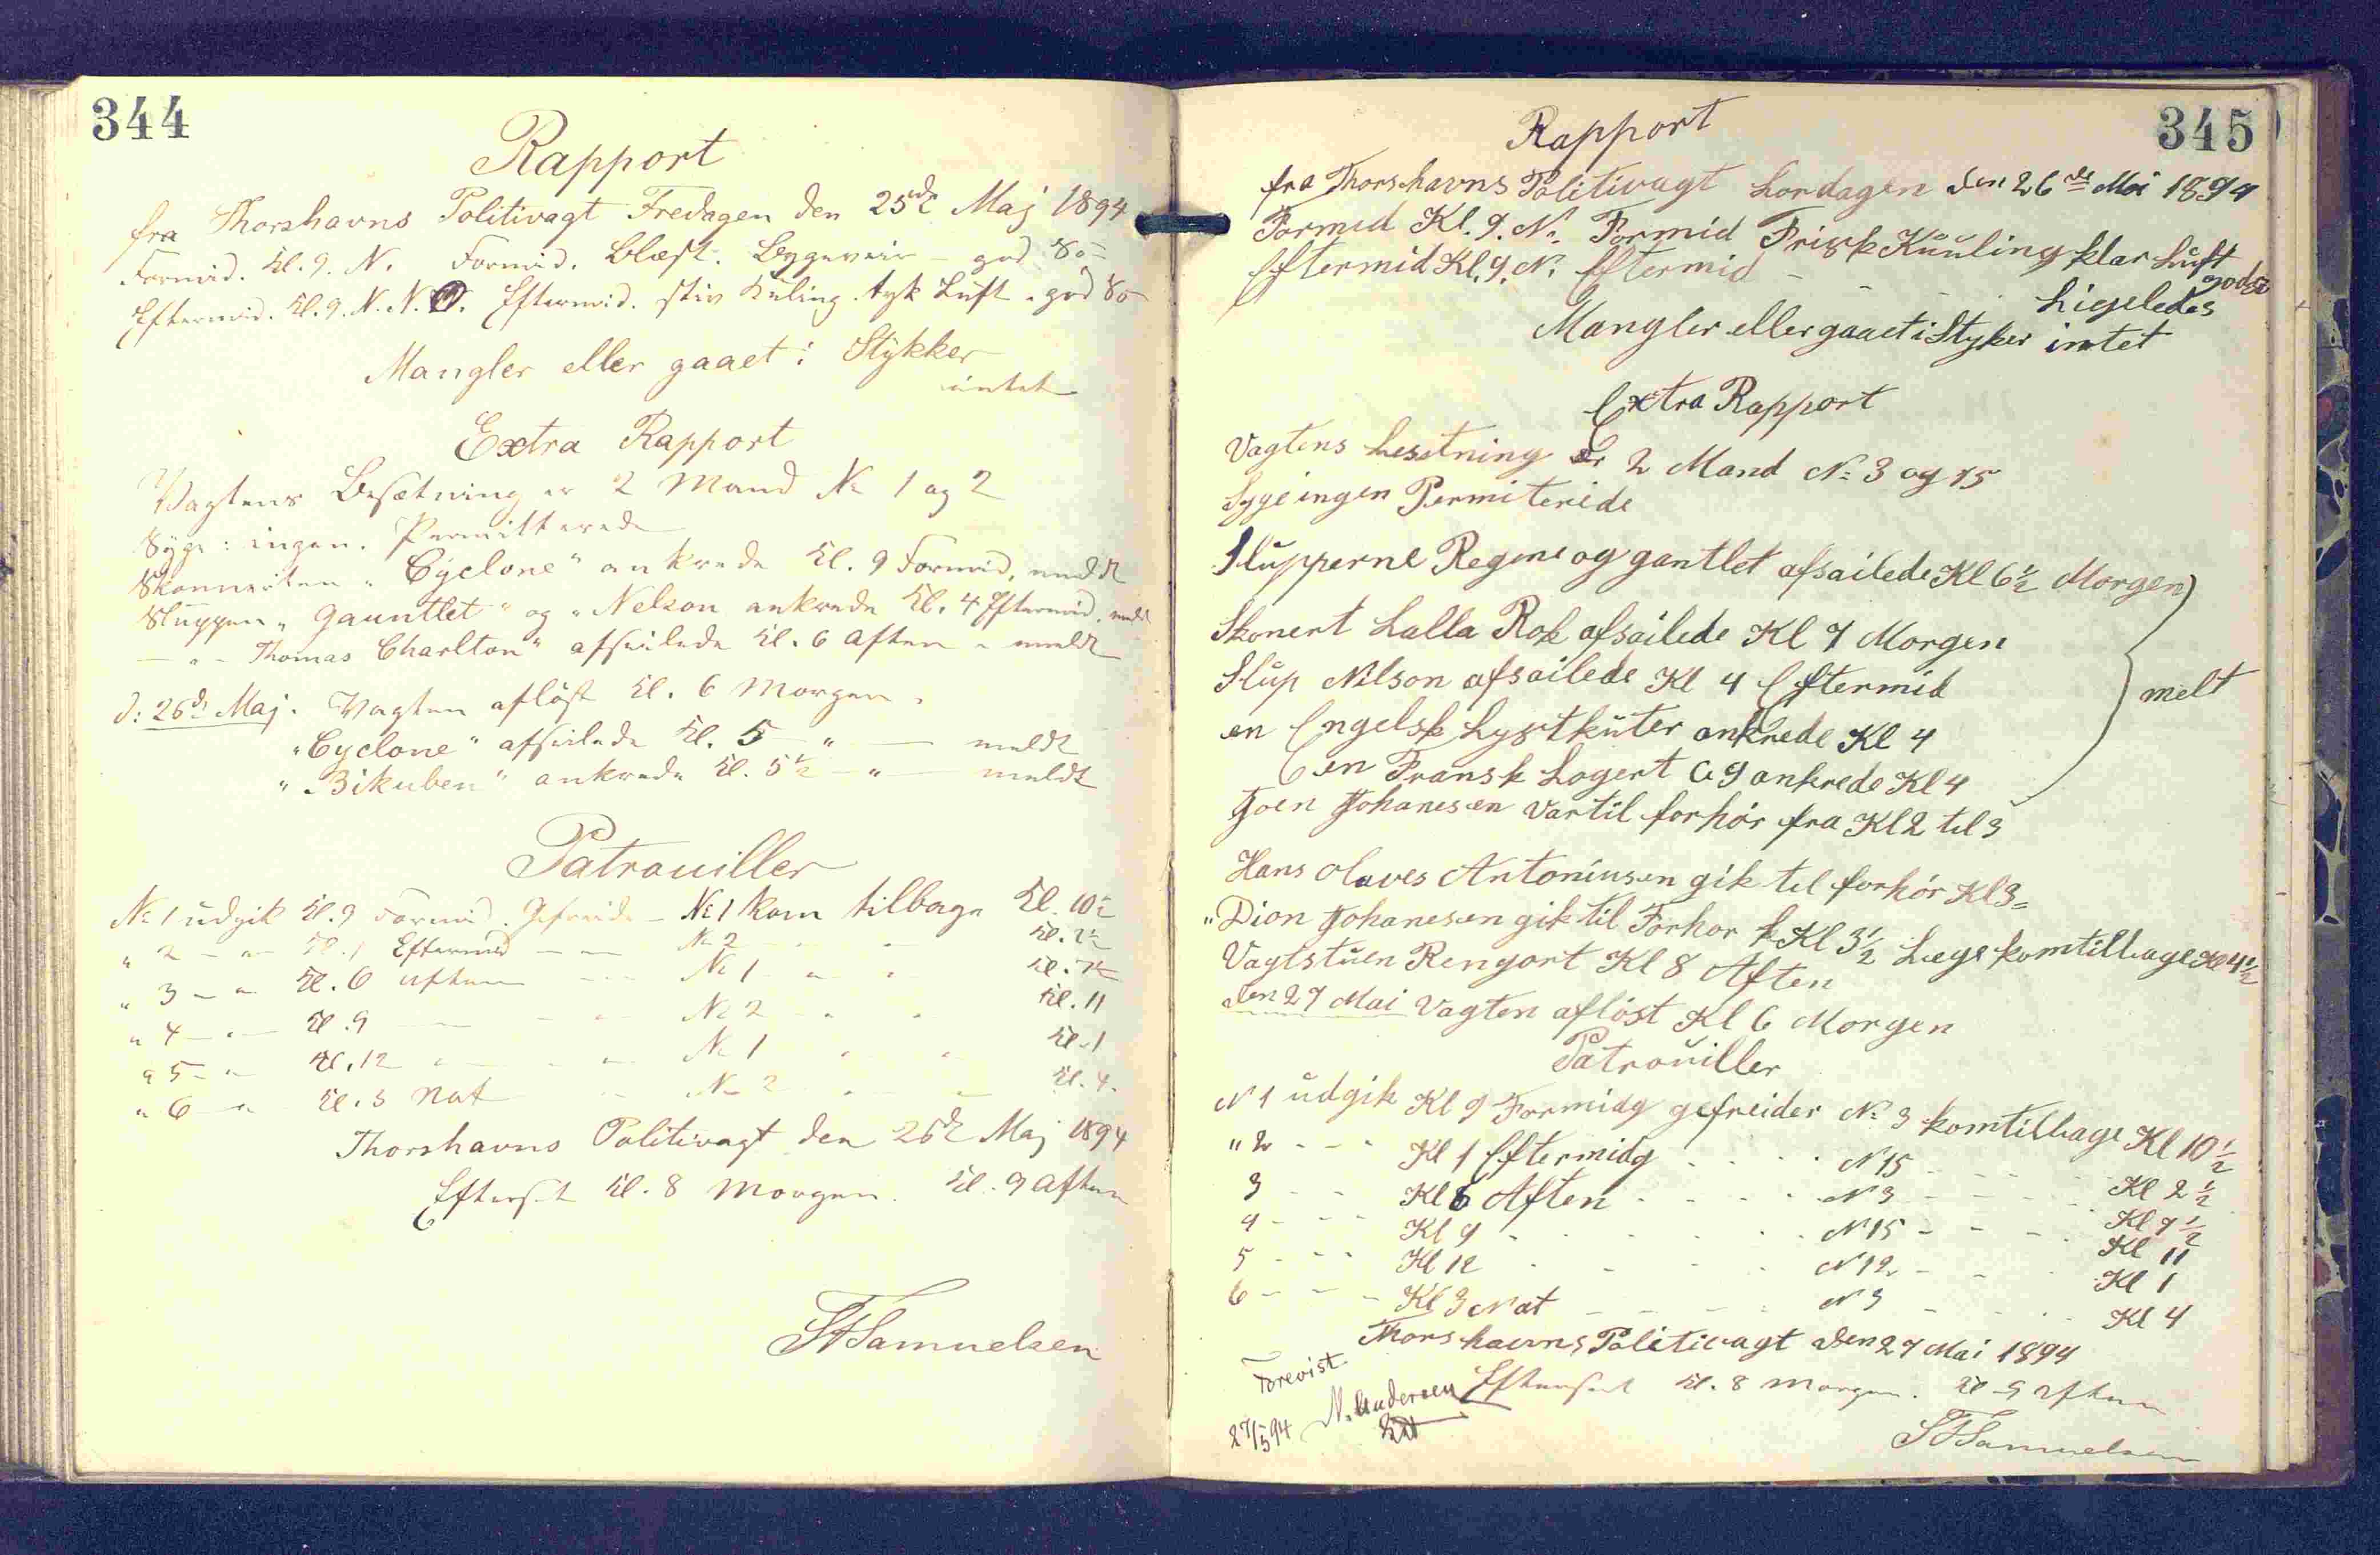 344
Rapport
fra Thorshavns Politivagt Fredagen den 25de Maj 1894
Formid. Kl. 9. N. Formid. Blæst. Bygeveir - god Sø
Eftermid. Kl. 9. N.N.O. Eftermid. stiv Kuling. tyk Luft - god Sø
Mangler eller gaaet i Stykker
intet
Extra Rapport
Vagtens Besætning er 2 Mand No 1 og 2
Syge: ingen. Permitterede
Skonnerten "Cyclone" ankrede Kl. 9 Formid, meldt
Sluppen "Gauntlet" og "Nelson ankrede Kl. 4 Eftermid. meldt
— " — Thomas Charlton" afseilede Kl. 6 Aften - meldt
d: 26de Maj. Vagten afløst Kl. 6 Morgen.
"Cyclone" afseilede Kl. 5 — " — meldt
"Bikuben" ankrede Kl. 5½ — " — meldt
Patrouiller
No 1 udgik Kl. 9 Formid. Gefreide - No 1 kom tilbage Kl. 10½
" 2 — " — Kl. 1 Eftermid — — No 2 - - Kl. 2½
" 3 — " Kl. 6 Aften — No 1 - " - Kl. 7½
" 4 — " — Kl. 9 — - - No 2 - " - Kl. 11
" 5 - " Kl. 12 " — - " - No 1 " " Kl. 1
" 6 — " Kl. 3 Nat - - No 2 - - Kl. 4.
Thorshavns Politivagt den 26de Maj 1894
Efterset Kl. 8 Morgen. Kl. 9 Aften
Samuelsen
345
Rapport
fra Thorshavns Politivagt Lordagen den 26de Mai 1894
Formid Kl. 9. N. Formid Frisk Kuuling klar Luft
god Sø
Eftermid Kl. 9. N. Eftermid - - - - Ligeledes
Mangler eller gaaet i Styker intet
Extra Rapport
Vagtens besetning Er 2 Mand No 3 og 15
Syge ingen Permiteride
Slupperne Regine og gantlet afsailede Kl 6½ Morgen
Skonert Lalla Rok afsailede Kl 7 Morgen
Slup Nilson afsailede Kl 4 Eftermid
melt
en Engelsk Lystkuter ankrede Kl 4
Een Fransk Logert ankrede Kl 4
Joen Johanesen var til forhør fra Kl 2 til 3
Hans Olaves Antoniusen gik til forhør Kl 3
"Dion Johanesen gik til Forhor Kl 3½ Lege kom tilbage Kl 4½
Vagtstuen Rengort Kl 8 Aften
den 27 Mai Vagten afløst Kl 6 Morgen
Patrouiller
N 1 udgik Kl 9 Formidg gefreider No 3 kom tilbage Kl 10½
" 2 - - - Kl 1 Eftermidg - - - - N 15 - - - Kl 2½
3 - - Kl 6 Aften - - - - N 3 - - - Kl 7½
4 - - - Kl 9 - - - - - N 15 - - - Kl 11
5 - - - Kl 12 - - - - N 12 - - Kl 1
6 - - - Kl 3 Nat - - - - N 3 - - - Kl 4
Thorshavns Politivagt den 27 Mai 1894
Forevist
Efterset Kl. 8 Morgen. Kl 9 Aften
27/5 94 N. Andersen
Samuelsen